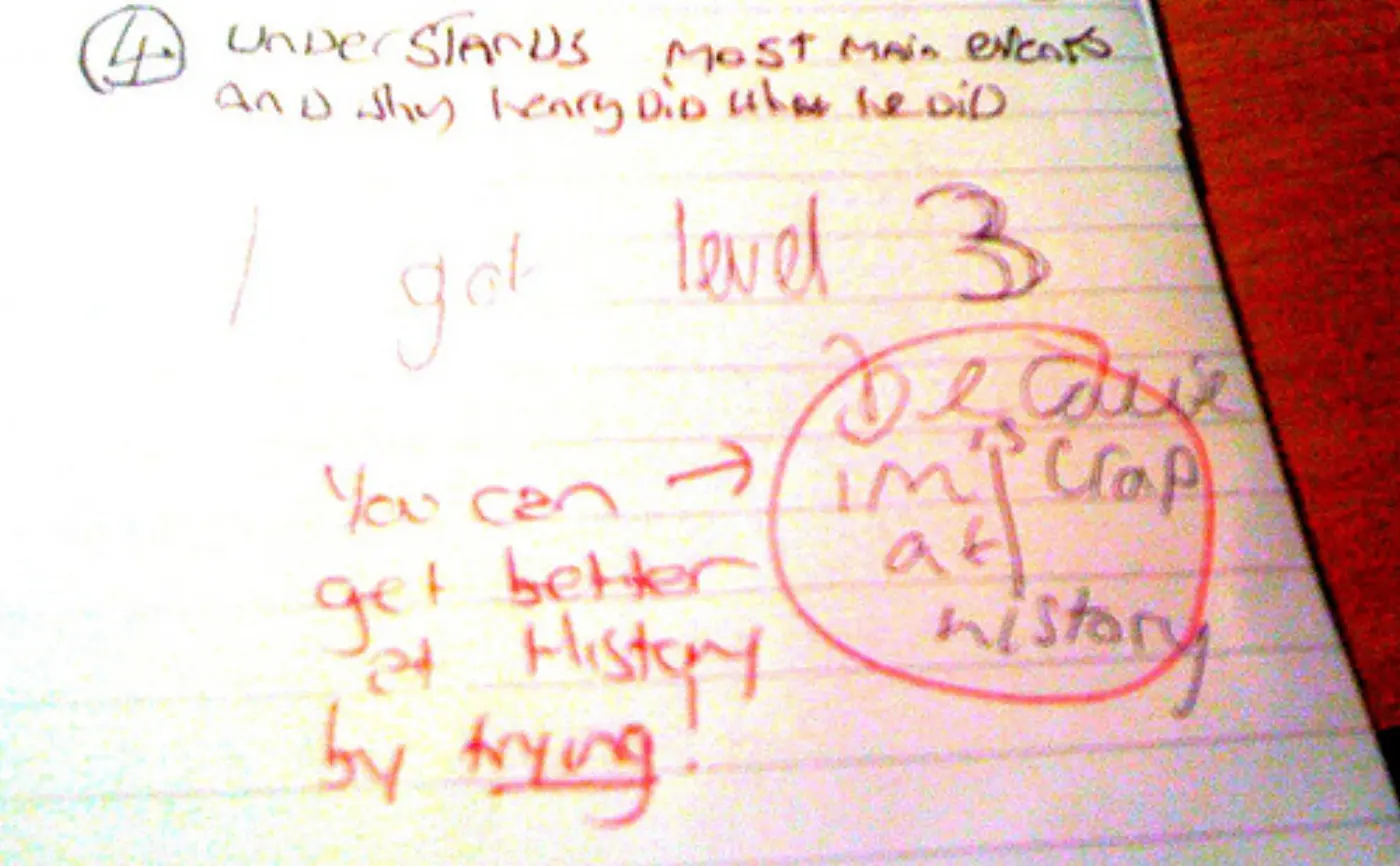 4. UNDERSTANDS MOST MAIN EVENTS
AND Why henry DiD what he DiD
I got level 3
because
im crap
at
history
You can →
get better
at History
by trying!